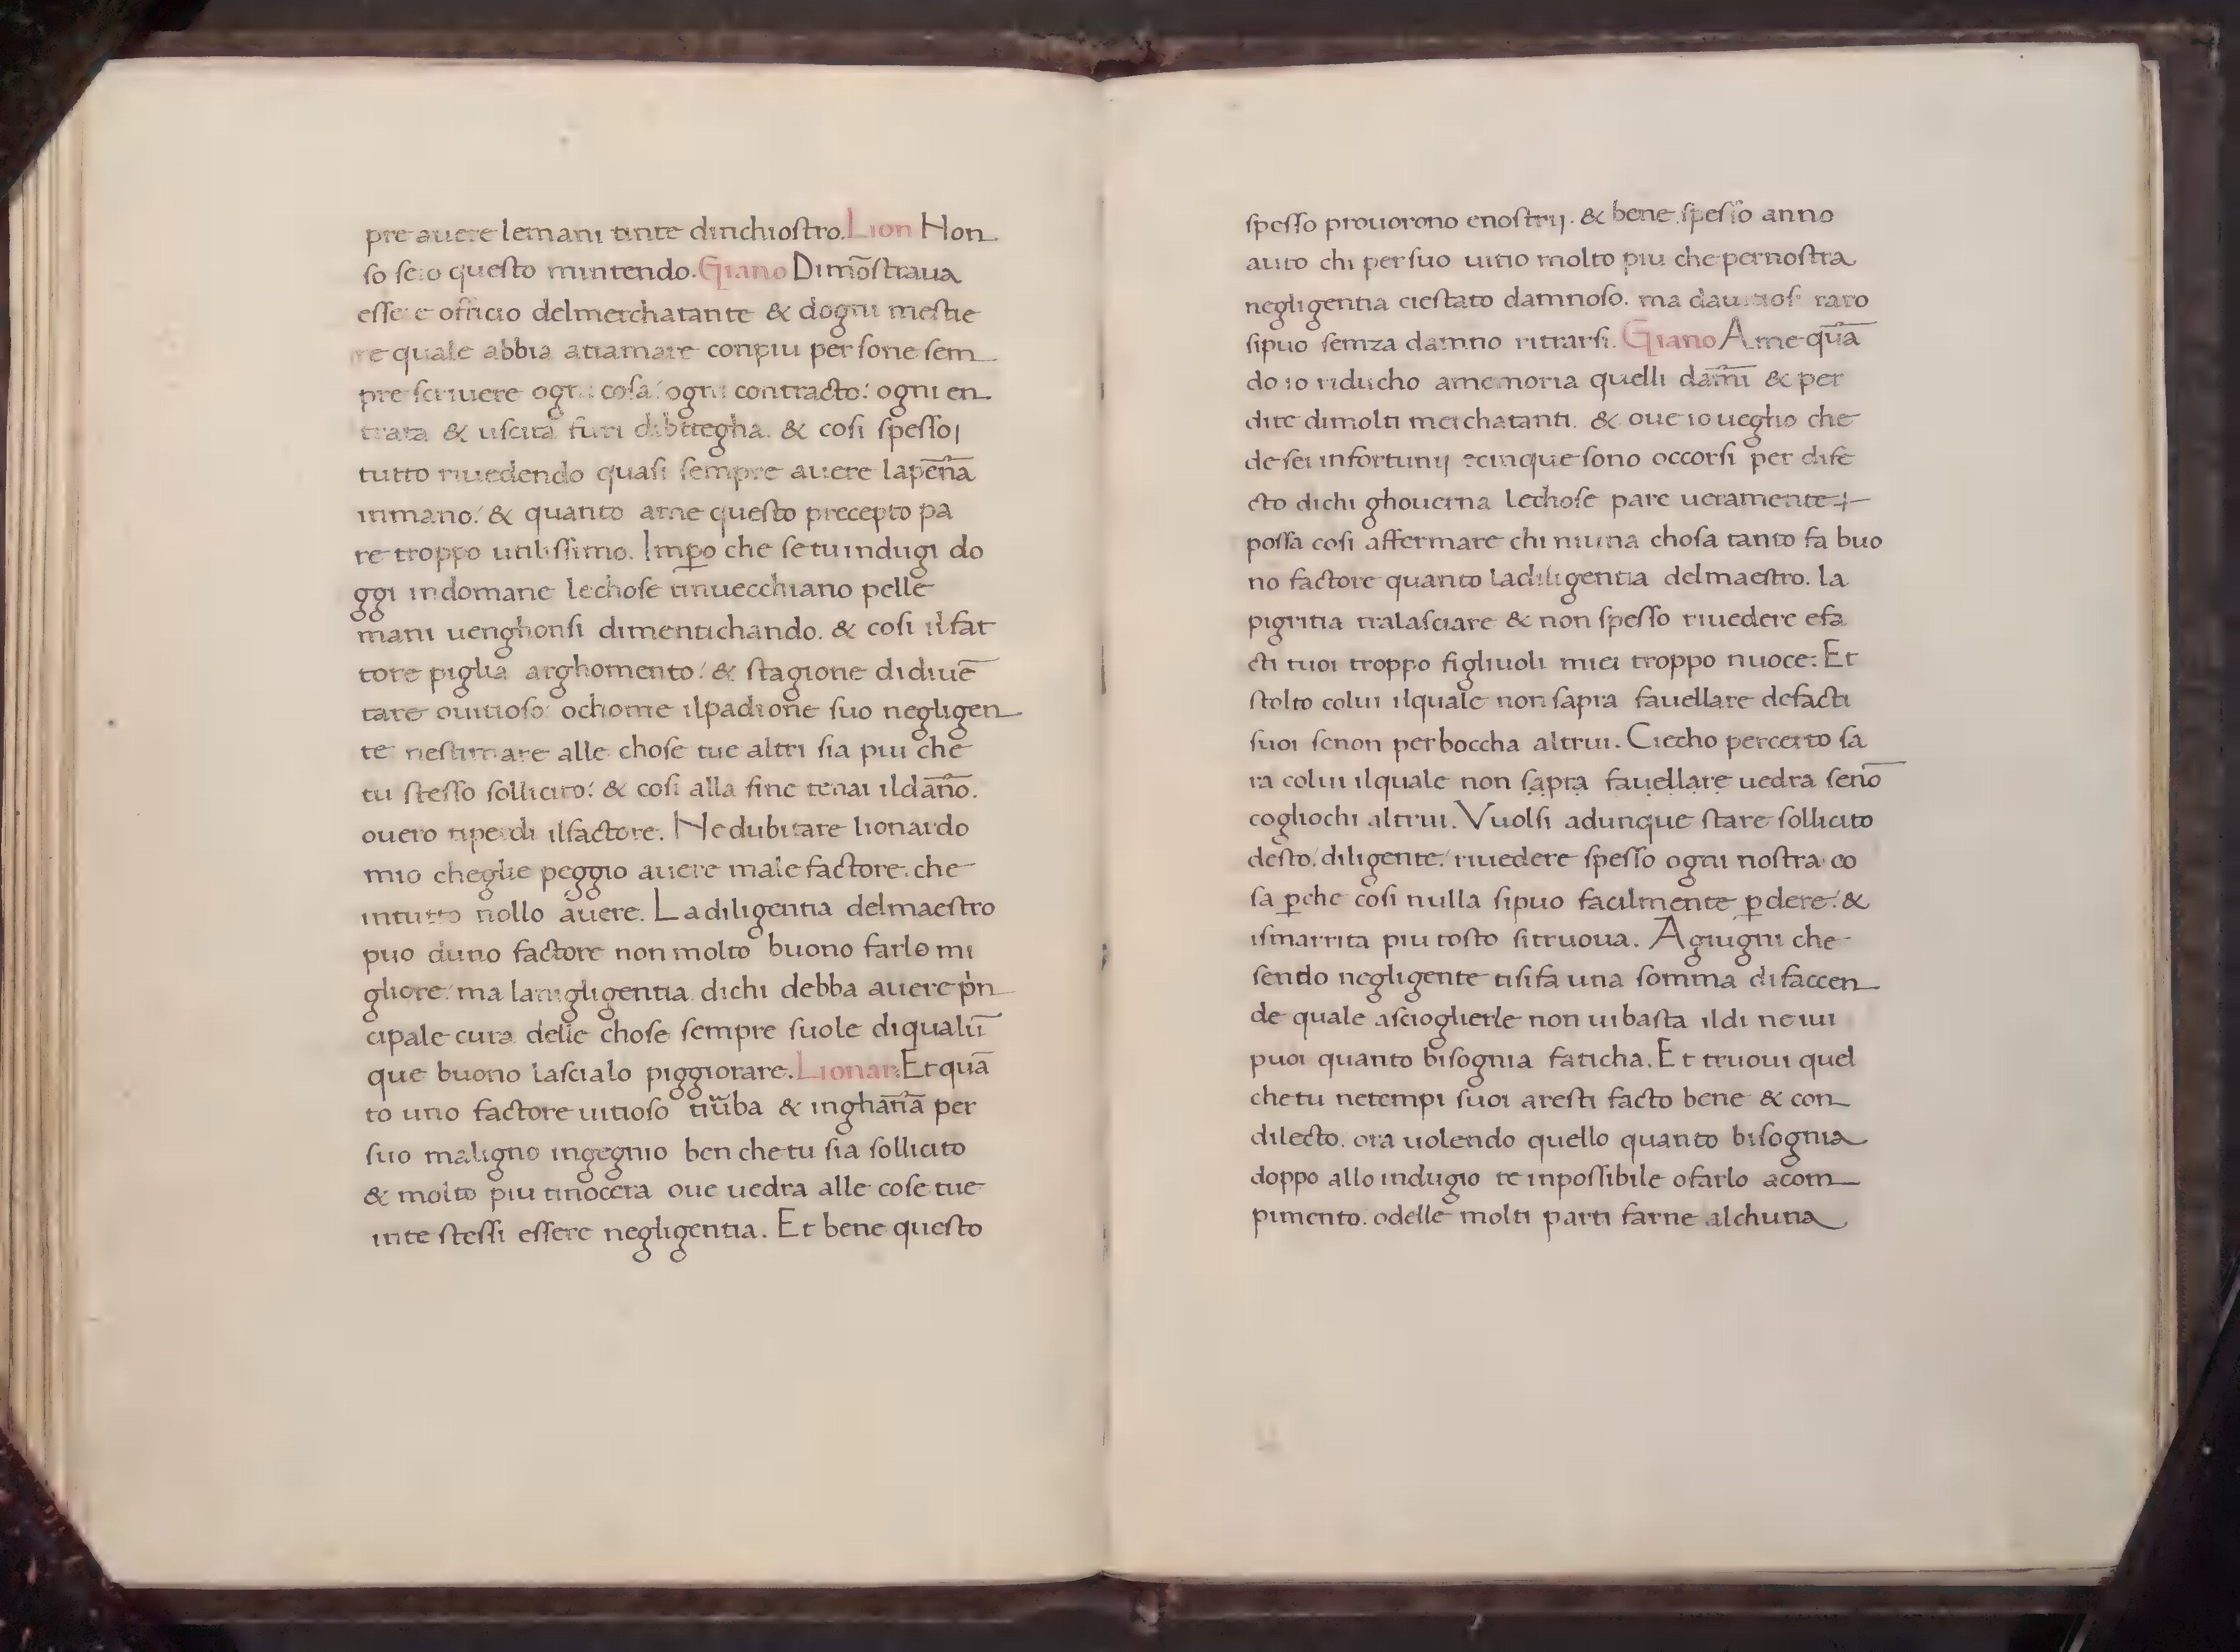 pre auere lemani tinte dinchiostro. Lion Non
so se io questo mintendo. Giano Dimōstraua
essere officio delmerchatante & dogni mestie
re quale abbia attamare conpiu persone sem
pre scriuere ogni cosa: ogni contracto: ogni en
trata & uscita furi dibottegha. & cosi spesso
tutto riuedendo quasi sempre auere lapēna
inmano: & quanto ame questo precepto pa
re troppo utilissimo. Imp̱o che setu indugi do
ggi indomane lechose tinuecchiano pelle
mani uenghonsi dimentichando. & cosi ilfat
tore piglia arghomento: & stagione didiuē
tare ouitioso: ochome ilpadrone suo negligen
te nestimare alle chose tue altri sia piu che
tu stesso sollicito: & cosi alla fine tenai ildāno.
ouero tiperdi ilfactore. Ne dubitare lionardo
mio cheglie peggio auere male factore. che
intutto nollo auere. La diligentia delmaestro
puo duno factore non molto buono farlo mi
gliore: ma lanigligentia dichi debba auere pn
cipale cura delle chose sempre suole di qualū
que buono lascialo piggiorare. Lionar. Et quā
to uno factore uitioso tiūba & inghāna per
suo maligno ingegnio ben chetu sia sollicito
& molto piu tinocera oue uedra alle cose tue
inte stessi essere negligentia. Et bene questo
spesso prouorono enostrij. & bene spesso anno
auto chi persuo uitio molto piu che pernostra
negligentia ciestato damnoso. ma raro
sipuo semza damno ritrarsi. Giano Ame quā
do io riducho amemoria quelli dam̄i & per
dite dimolti merchatanti. & oue io uegho che
de sei infortunij ecinque sono occorsi per dife
cto dichi ghouerna lechose pare ueramente
possa cosi affermare chi niuna chosa tanto fa buo
no factore quanto ladiligentia delmaestro. la
pigritia tralasciare & non spesso riuedere efa
cti tuoi troppo figliuoli miei troppo nuoce: Et
stolto colui ilquale non sapra fauellare defacti
suoi senon perboccha altrui. Ciecho percerto sa
ra colui ilquale non sapra fauellare uedra senō
cogliochi altrui. Vuolsi adunque stare sollicito
desto: diligente: riuedere spesso ogni nostra co
sa p̱che cosi nulla sipuo facilmente p̱dere: &
ismarrita piu tosto sitruoua. Agiugni che
sendo negligente tisifa una somma difaccen
de quale ascioglierle non uibasta ildi ne ui
puoi quanto bisognia faticha. Et truoui quel
chetu netempi suoi aresti facto bene & con
dilecto. ora uolendo quello quanto bisognia
doppo allo indugio te inpossibile ofarlo acom
pimento. odelle molti parti farne alchuna